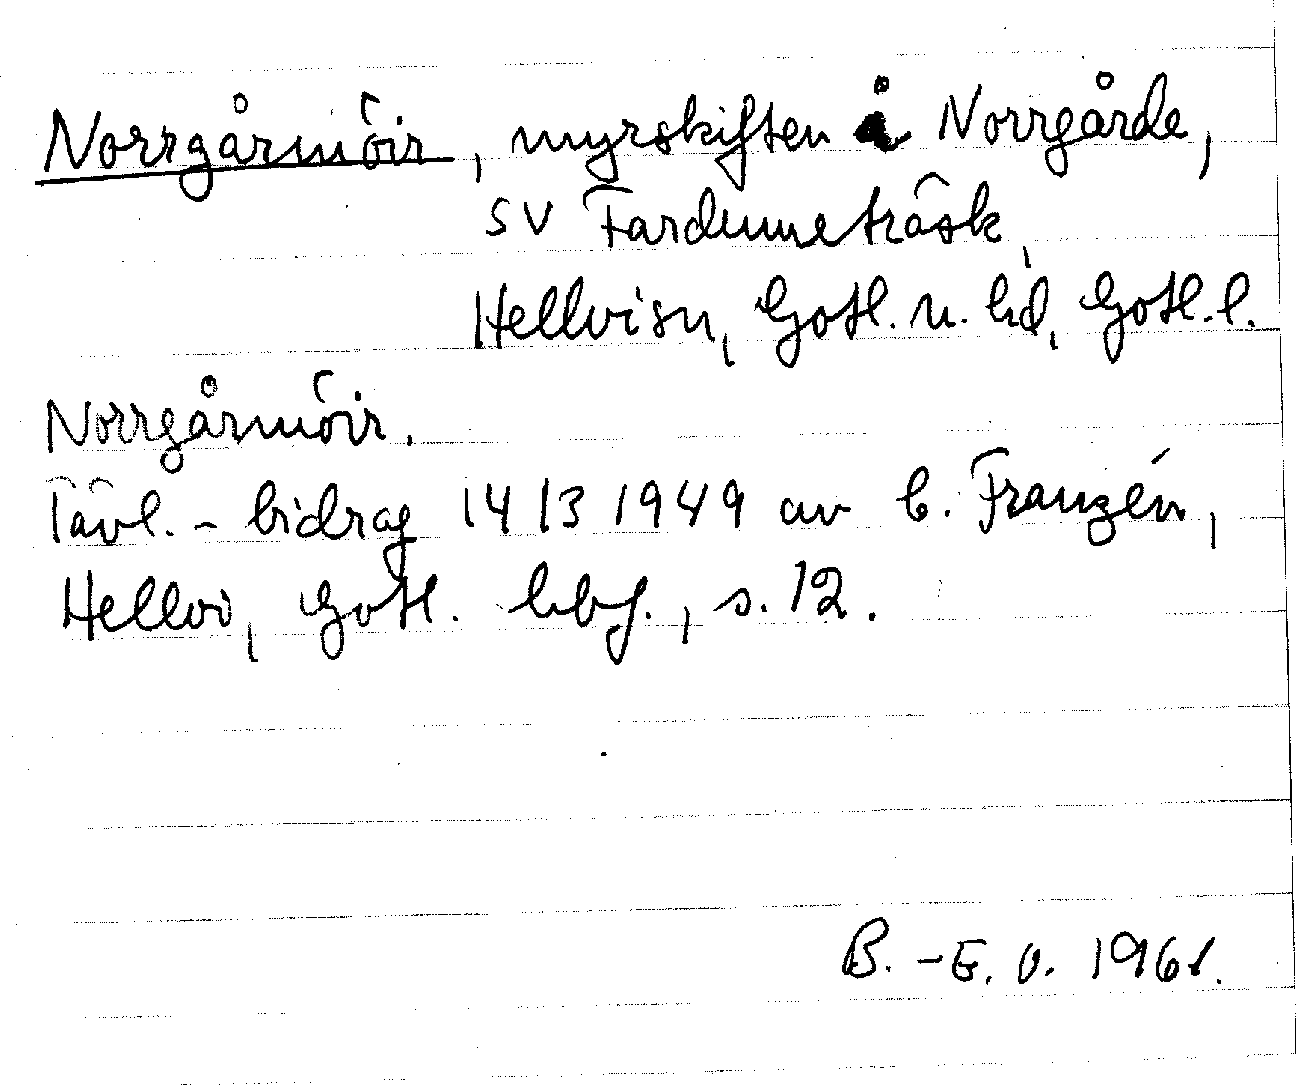 Norrgårmöir, myrskiften å Norrgårde,
SV Fardumeträsk,
Hellvi sn, Gotl. n. hd, Gotl. l.
Norrgårmöir.
Tävl. - bidrag 14/3 1949 av C. Franzén,
Hellvi, Gotl. hbf., s. 12.
B. -E. O. 1961.